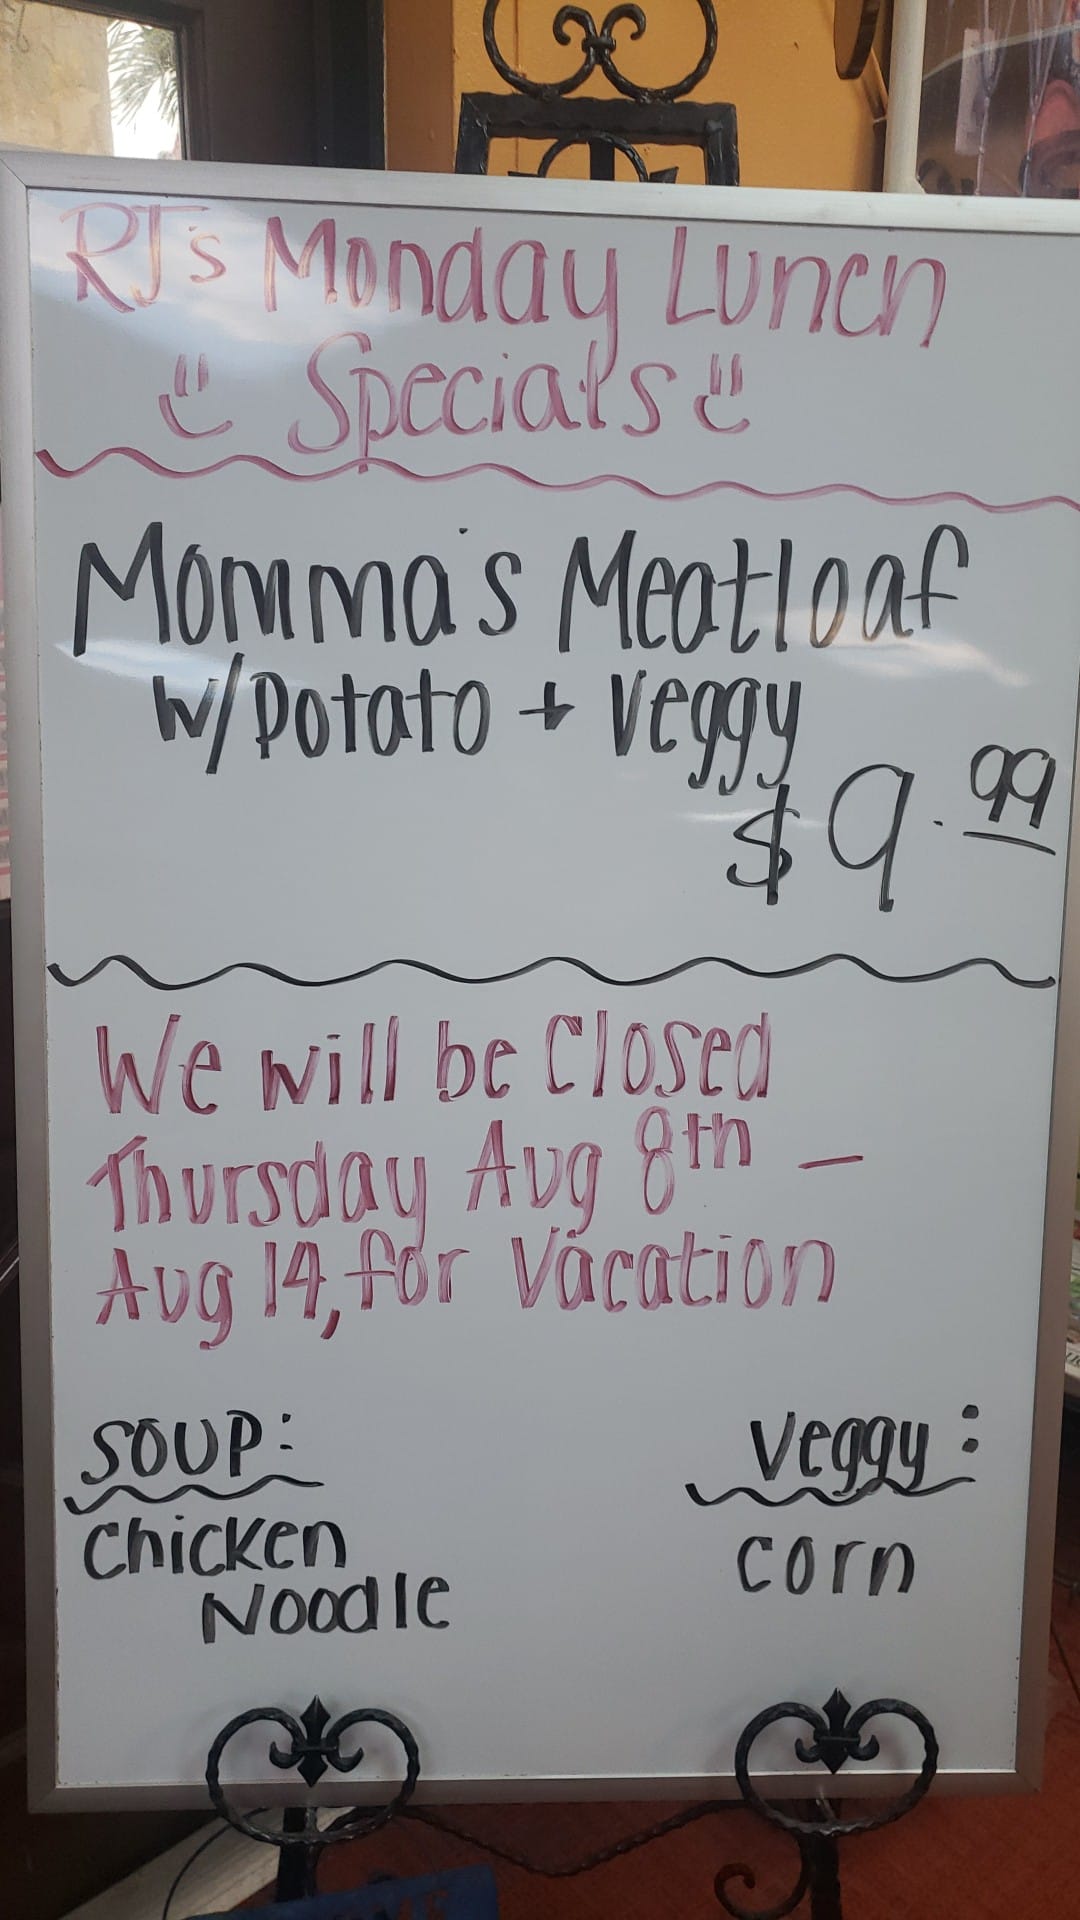 RJ's Monday Lunch
Specials
Momma's Meatloaf
w/Potato + Veggy
$9.99
We will be Closed
Thursday Aug 8th -
Aug 14, for Vacation
SOUP:
Chicken
Noodle
Veggy:
corn